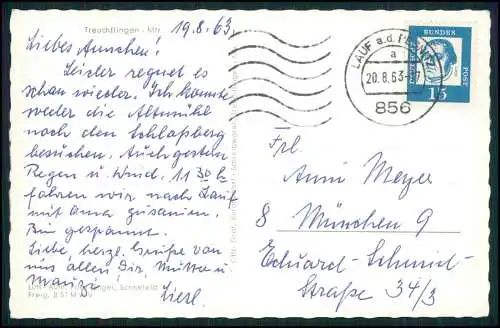 Treuchtlingen - Mfr.
19.8.63
Liebes Annchen!
Leider regnet es
schon wieder. Ich konnte
weder die Altmühl
noch den Schloßberg
besuchen. Auch gestern
Regen u. Wind. 11 30 h
fahren wir nach Lauf
mit Oma zusamm.
Bin gespannt.
Liebe, herzl. Grüße von
uns allen Dir, Mutter u
Mauzi
Liesl.
Freig.
LAUF a.d.
a
20.8.63-
856
BUNDES
POST
15
Frl.
Anni Meyer
8 München 9
Eduard-Schmid-
Straße 34/3